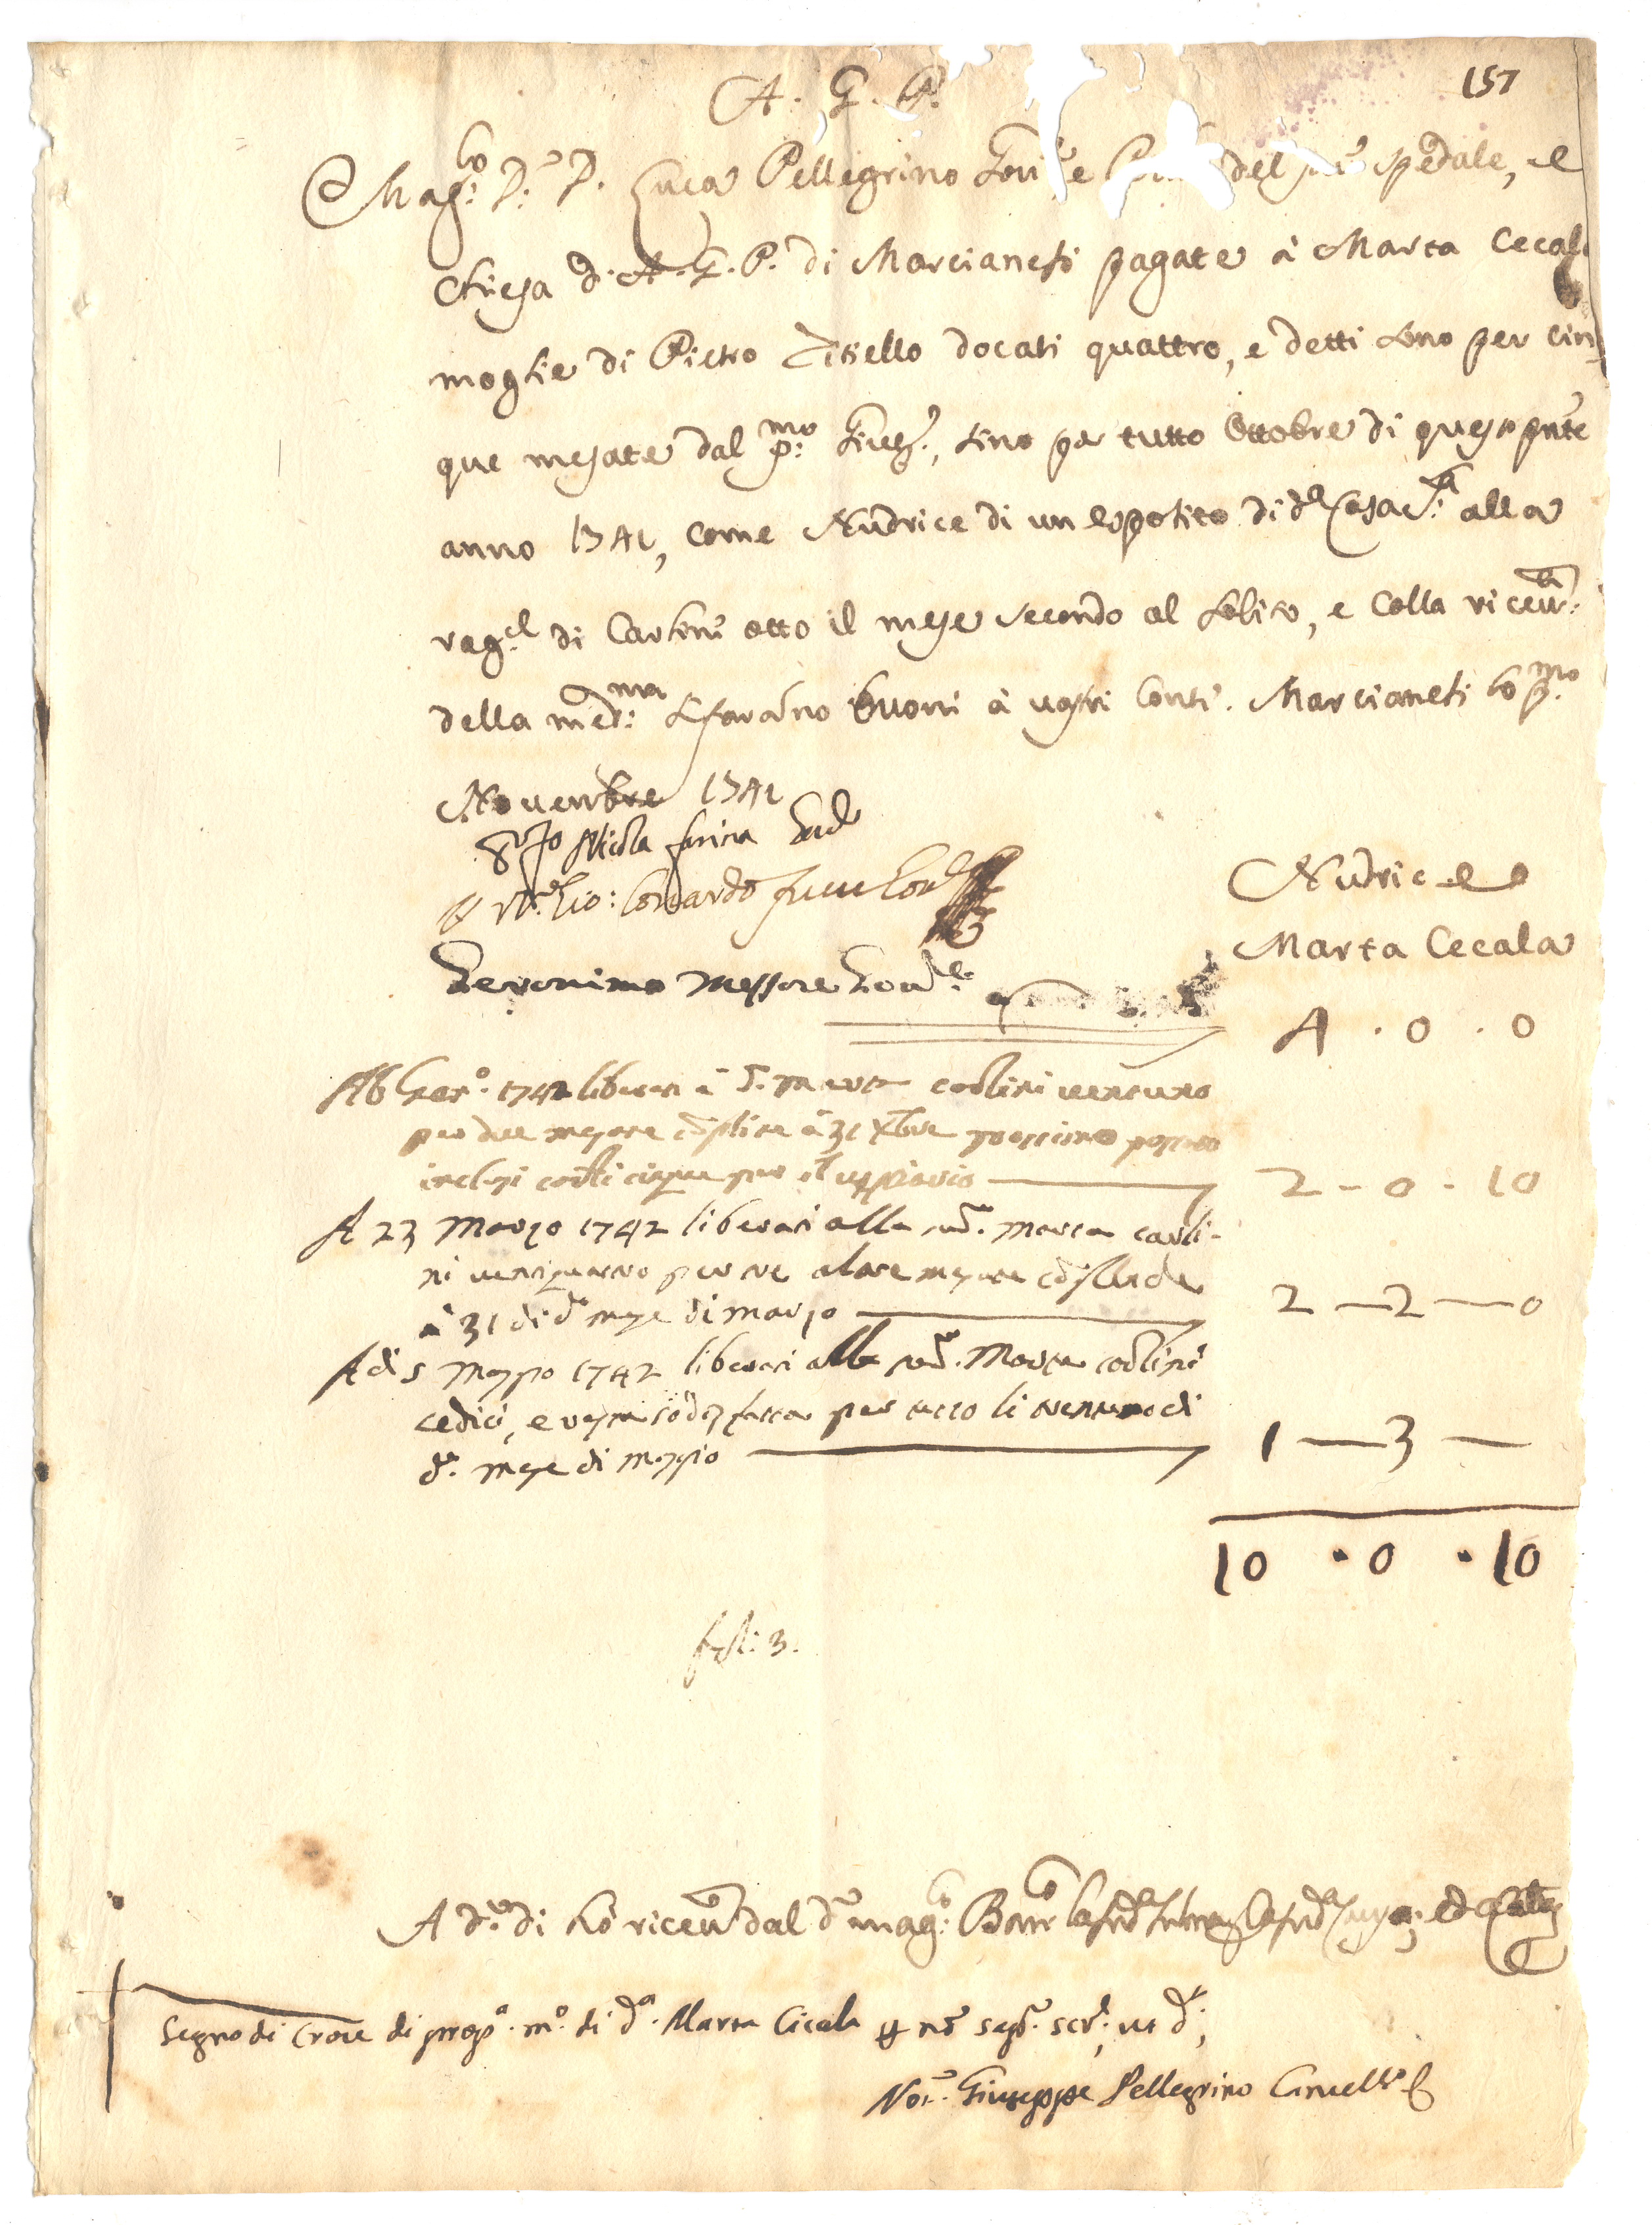 A. G. P.
157
Mag:co D: D. Luca Pellegrino Gov.re e del spedale, e
Chiesa d. A. G. P. di Marcianesi pagate à Marta Cecal
moglie di Pietro Zitiello docati quattro, e detti sono per cin
que mesate dal p:mo Giug:o, sino per tutto Ottobre di questo pnte
anno 1741, come Nudrice di un esposito di d.a Casa S:ta alla
rag:e di Carlini otto il mese secondo al solito, e colla ricev:ta
della med:ma si faranno buoni à vostri Conti. Marcianesi lo p:mo
Novembre 1741
Nicola farina
Leonardo
Geronimo Messore Gov.re
Nudrice
Marta Cecala
4 . 0 . 0
A 6 Gen.o 1742 liberati à d. Marta carlini ventuno
per due mesate complite à 31 Xbre prossimo passato
inclusi carli cinque per il
2 - 0 - 10
A 23 Marzo 1742 liberati alla sud.a Marta carli-
ni ventiquattro per tre altre mesate
à 31 di d.o mese di marzo
2 - 2 - 0
A di 5 Maggio 1742 liberati alla sud.a Marta carlini
sedici, e resta sodisfatta per tutto li ventuno di
d.o mese di maggio
1 - 3 -
10 . 0 . 10
fedi: 3.
A d.o di hò ricev.to dal d.o mag:co
Segno di Croce di prop.a m.o di d.a Marta Cicala p non sap.e scr.e, ut d.r
Not.r Giuseppe Pellegrino